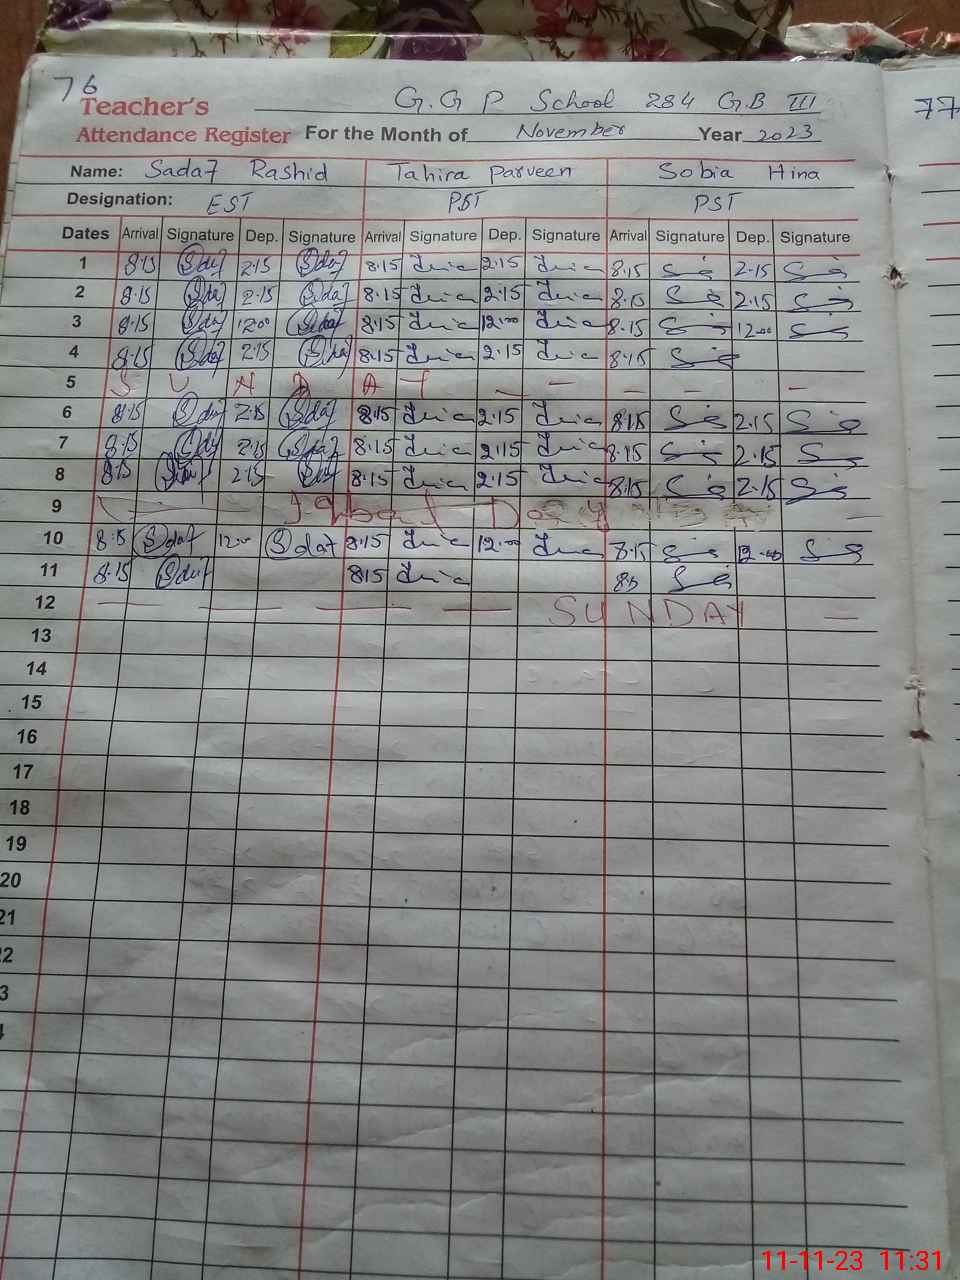 76
Teacher's G.G P School 284 G.B III
Attendance Register For the Month of November Year 2023
77
Name: Sadaf Rashid Tahira Parveen Sobia Hina
Designation: EST PST PST
Dates Arrival Signature Dep. Signature Arrival Signature Dep. Signature Arrival Signature Dep. Signature
1 8.15 Sdaf 2.15 Sdaf 8.15 2.15 8.15 2.15
2 8.15 Sdaf 2.15 Sdaf 8.15 2.15 8.15 2.15
3 8.15 Sdaf 12.00 Sdaf 8.15 12.00 8.15 12.00
4 8.15 Sdaf 2.15 Sdaf 8.15 2.15 8.15
5 S U N D A Y — — — — —
6 8.15 Sdaf 2.15 Sdaf 8.15 2.15 8.15 2.15
7 8.15 Sdaf 2.15 Sdaf 8.15 2.15 8.15 2.15
8 8.15 Sdaf 2.15 Sdaf 8.15 2.15 8.15 2.15
9 Iqbal Day —
10 8.15 Sdaf 12.00 Sdaf 8.15 12.00 8.15 12.00
11 8.15 Sdaf 8.15 8.15
12 — — — — SUNDAY —
13
14
15
16
17
18
19
20
21
22
3
4
11-11-23 11:31